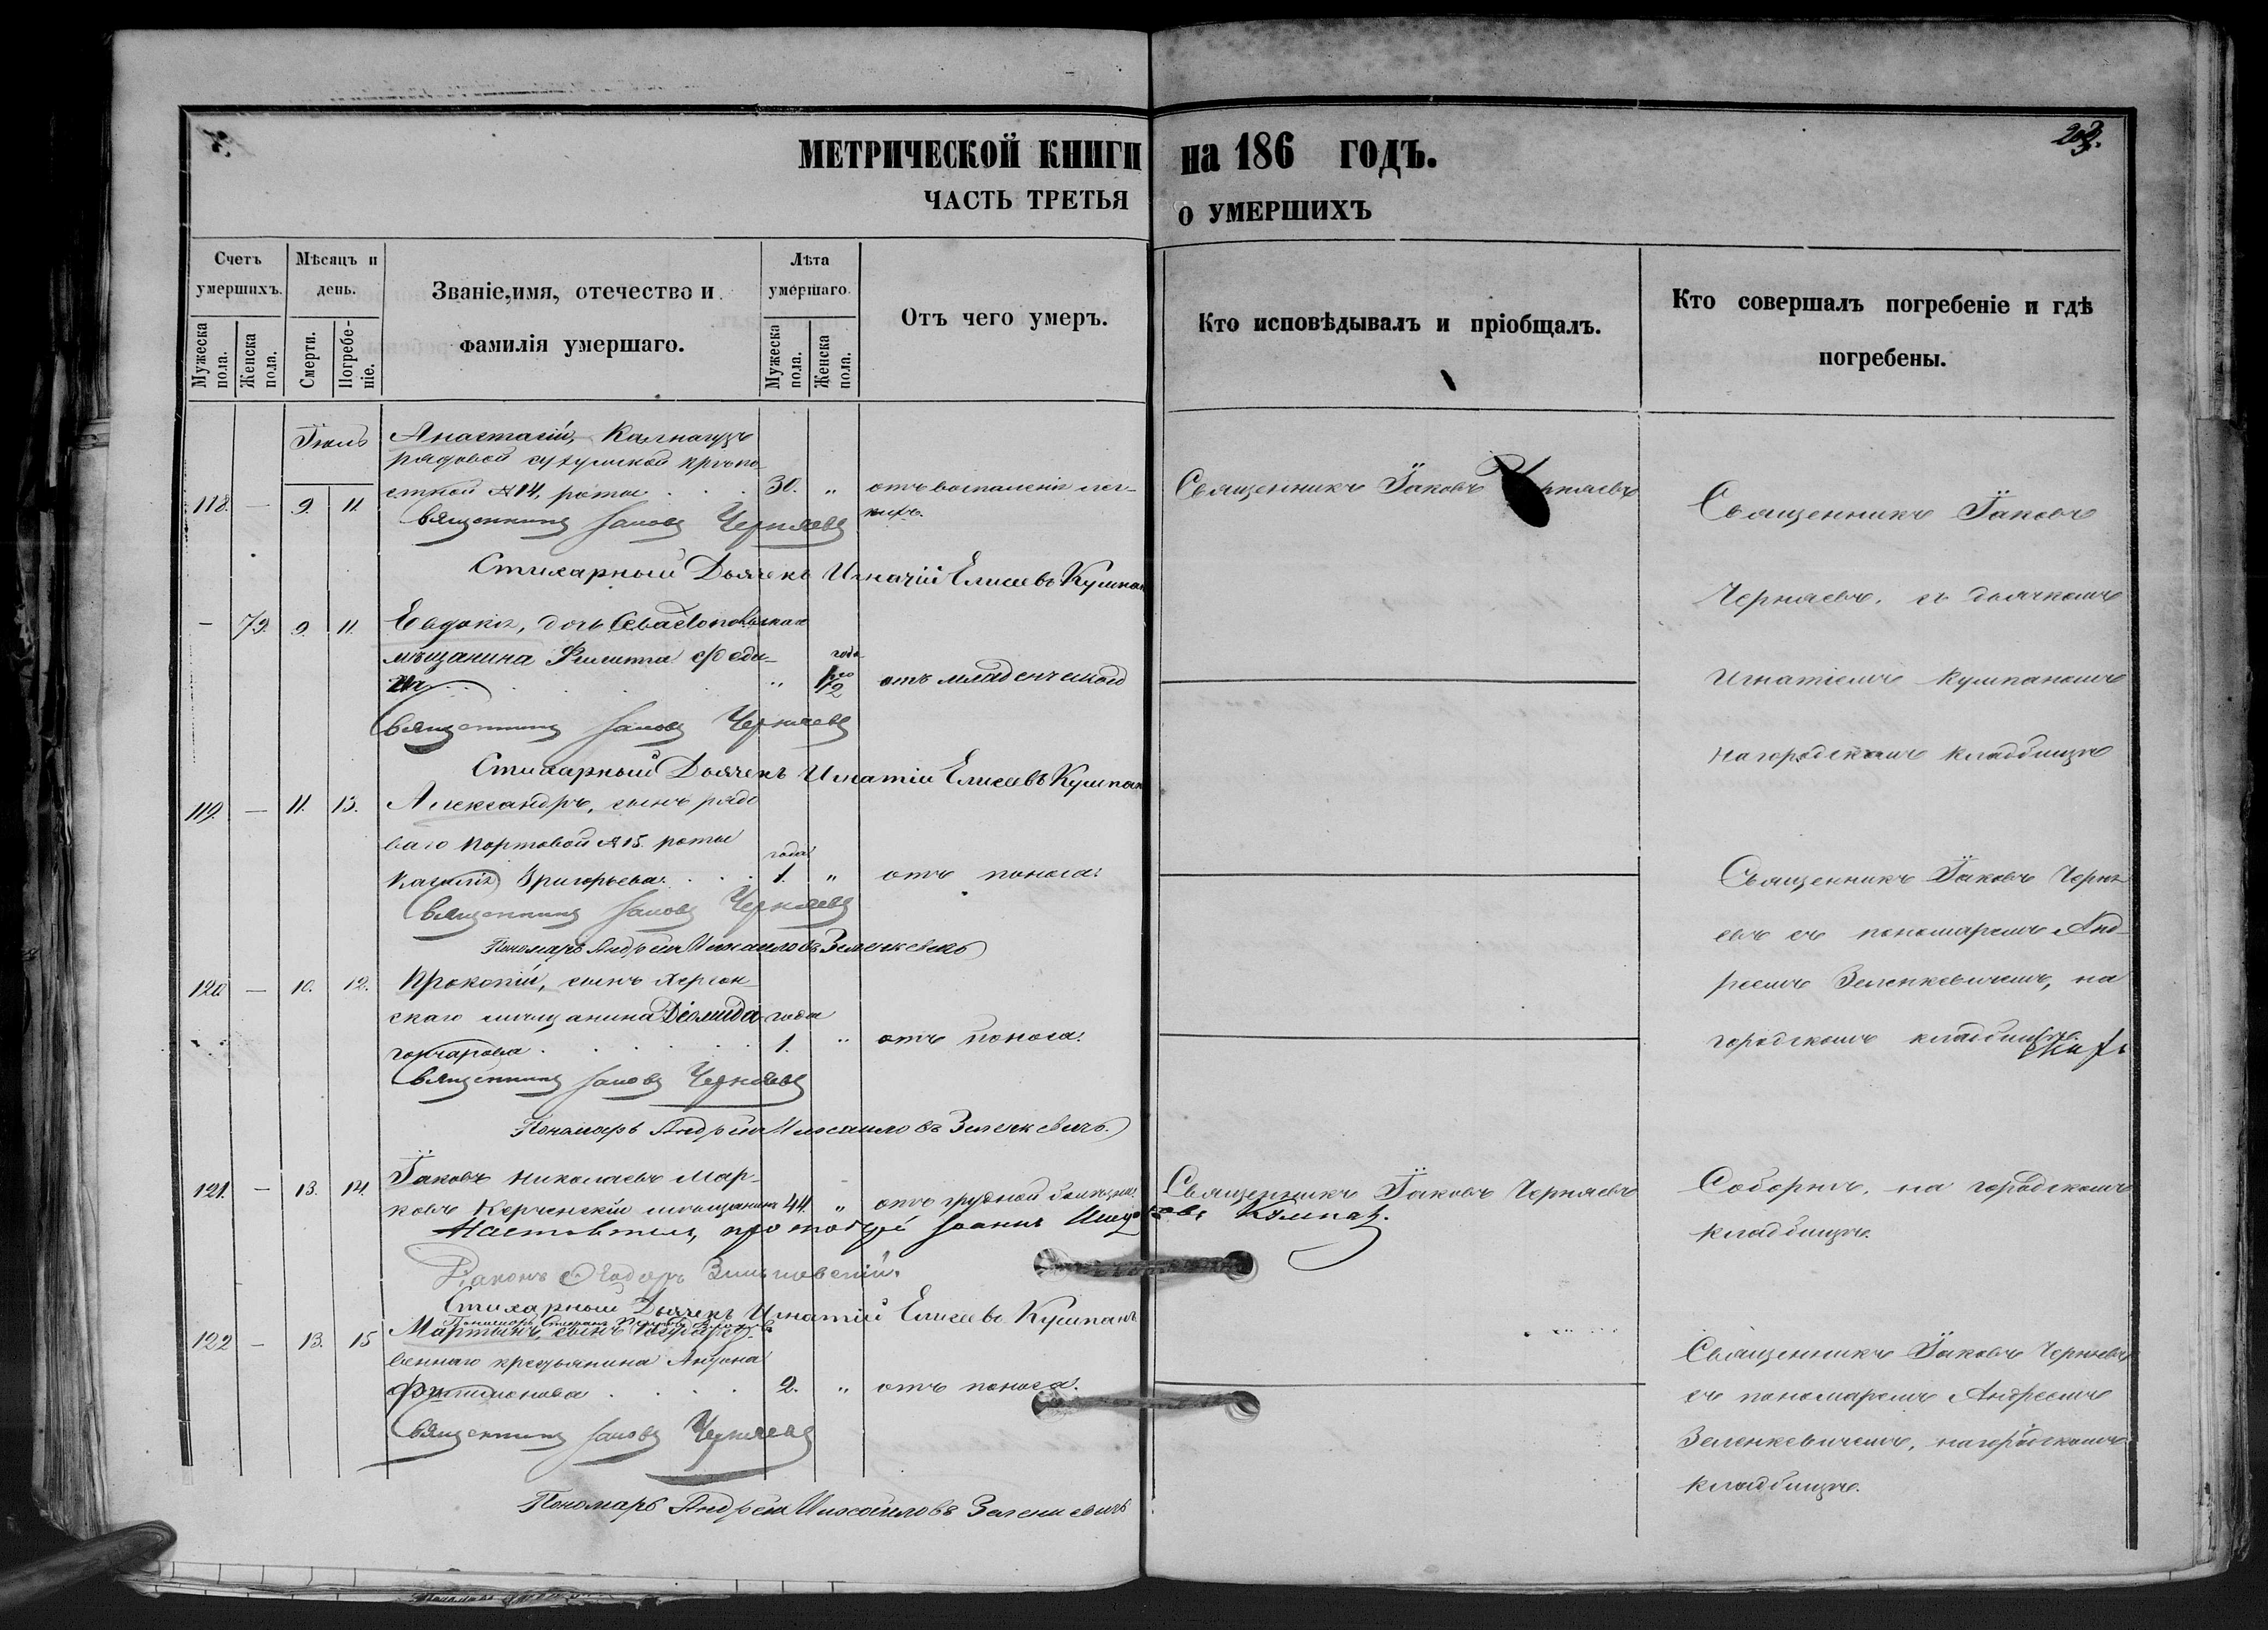 МЕТРИЧЕСКОЙ КНИГИ на 186 ГОДЪ.
ЧАСТЬ ТРЕТЬЯ О УМЕРШИХЪ
203.
Счетъ умершихъ.
Мужеска пола.
Женска пола.
Мѣсяцъ и день.
Смерти.
Погребе-ніе.
Званіе, имя, отечество и
фамилія умершаго.
Лѣта умершаго.
Мужеска пола.
Женска пола.
Отъ чего умеръ.
Кто исповѣдывалъ и пріобщалъ.
Кто совершалъ погребеніе и гдѣ
погребены.
Іюль
Анастасій,
рядовой крѣпо
118. — 9. 11. стной №14, роты . . . 30. „ отъ воспаленія лег-
кихъ.
Священникъ Іаковъ Черняевъ
Священникъ Іаковъ Черняевъ
Стихарный Дьячекъ Игнатій Елисеевъ Кумпан
Священникъ Іаковъ
Черняевъ, съ дьячкомъ
Игнатіемъ Кумпаномъ
на городскомъ кладбищѣ
— 79. 9. 11. Евдокія, дочь Севастопольскаго
мѣщанина Филиппа
года
1/2 отъ младенческой
Священникъ Іаковъ Черняевъ
Стихарный Дьячекъ Игнатій Елисеевъ Кумпан
119. — 11. 13. Александръ, сынъ рядо
ваго портовой №15. роты
года
Григорьева . . . 1. „ отъ поноса.
Священникъ Іаковъ Черняевъ
Пономарь Андрей Михайловъ Зеленкевичъ
Священникъ Іаковъ Черня
евъ съ пономаремъ Анд-
реемъ Зеленкевичемъ, на
городскомъ кладбищѣ.
120 — 10. 12. Прокопій, сынъ Херсон-
скаго мѣщанина Діомида года
гончарова . . . . . 1. „ отъ поноса.
Священникъ Іаковъ Черняевъ
Пономарь Андрей Михайловъ Зеленкевичъ.
121. — 13. 14. Іаковъ Николаевъ Мар-
ковъ Керченскій мѣщанинъ 44. „ отъ грудной болезни.
Священникъ Іаковъ Черняевъ
Соборнѣ, на городскомъ
кладбищѣ.
Настоятель, протоіерей Іоаннъ
Діаконъ Ѳеодоръ
Стихарный Дьячекъ Игнатій Елисеевъ Кумпанъ
Пономарь Стефанъ
122 — 13. 15 Мартынъ, сынъ Государст
веннаго крестьянина Антона
Филимонова . . . . 2. „ отъ поноса.
Священникъ Іаковъ Черняевъ
Пономарь Андрей Михайловъ Зеленкевичъ
Священникъ Іаковъ Черняевъ
съ пономаремъ Андреемъ
Зеленкевичемъ, на городскомъ
кладбищѣ.